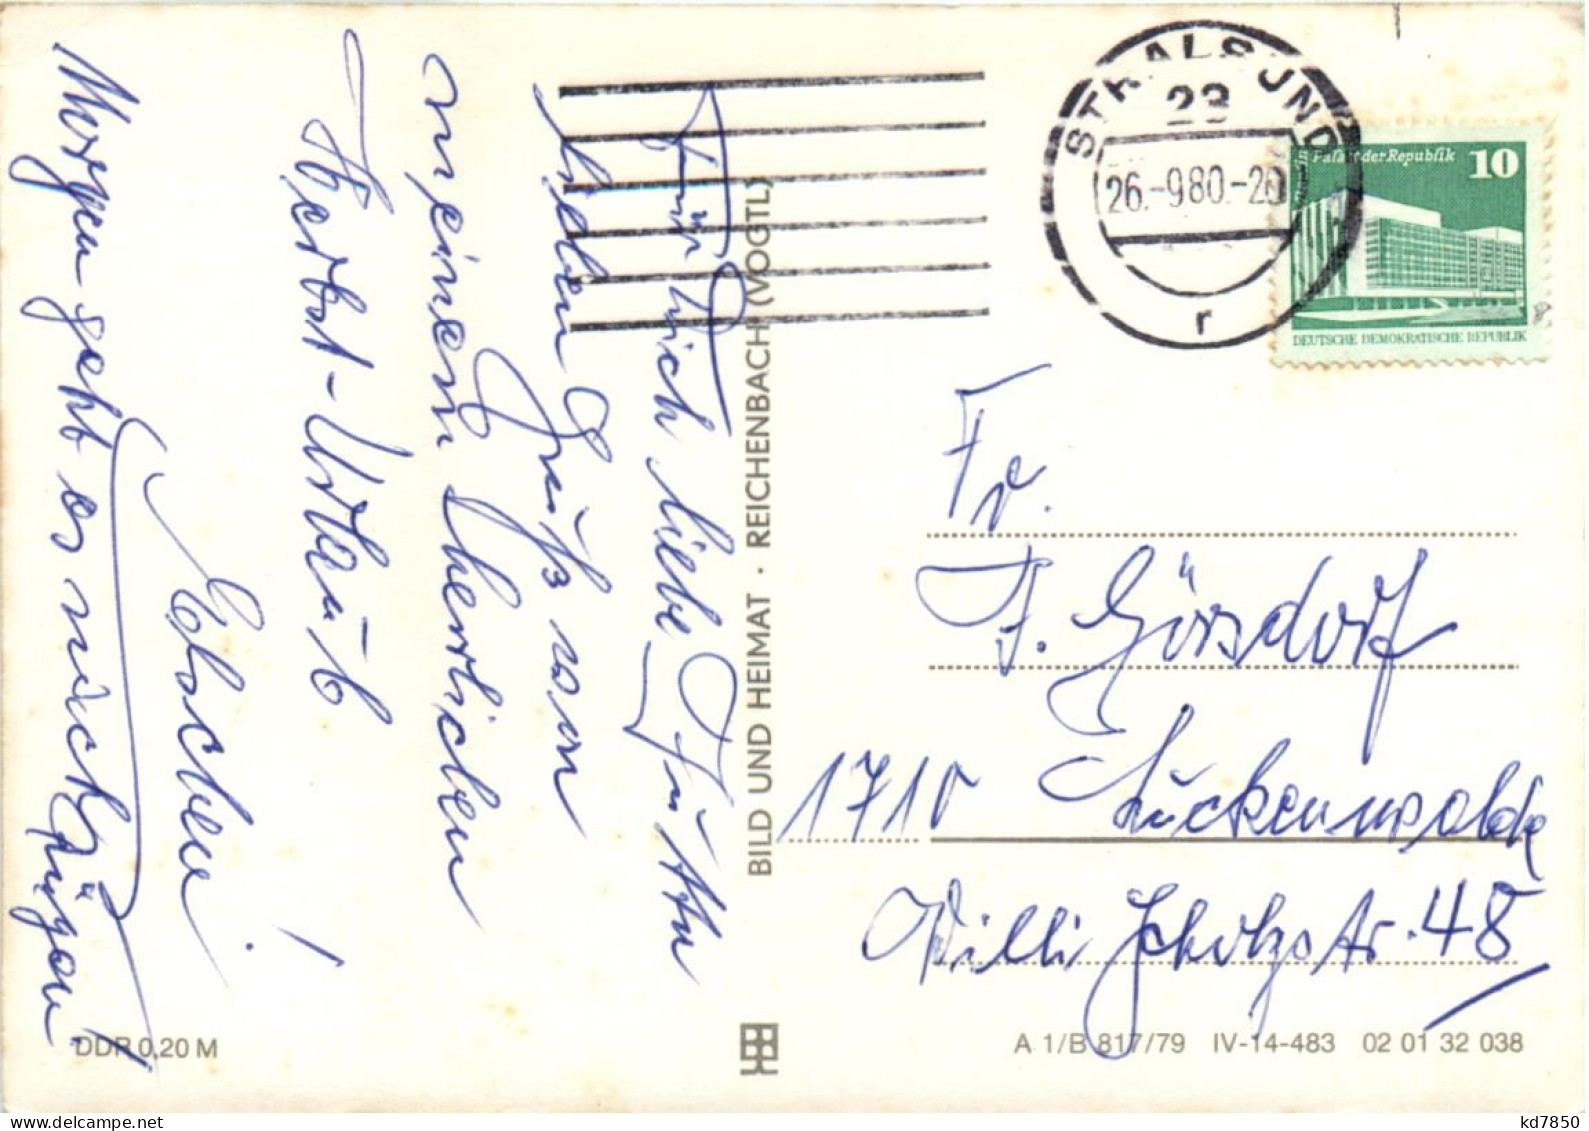 Für Dich liebe Jutta
lieben Gruß von
meinem herrlichen
Herbst-Urlaub
!
Elschen.
Morgen geht es nach Rügen!
BILD UND HEIMAT · REICHENBACH (VOGTL)
STRALSUND
23
26.-9.80.-20
r
Palast der Republik 10
DEUTSCHE DEMOKRATISCHE REPUBLIK
Fr.
J. Görsdorf
1710 Luckenwalde
Willi Scholz Str. 48
DDR 0,20 M
A 1/B 817/79 IV-14-483 02 01 32 038
kd7850